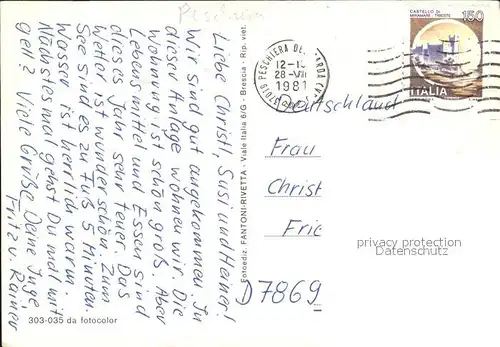 Peschiera
Liebe Christl, Susi und Heiner!
Wir sind gut angekommen. In
dieser Anlage wohnen wir. Die
Wohnung ist schön groß. Aber
Lebensmittel und Essen sind
dieses Jahr sehr teuer. Das
Wetter ist wunderschön. Zum
See sind es zu Fuß 5 Minuten.
Wasser ist herrlich warm.
Nächstesmal gehst Du mal mit
gell? Viele Grüße Deine Inge
Fritz u. Rainer
303-035 da fotocolor
Fotoediz. FANTONI-RIVETTA - Viale Italia 6/G - Brescia - Rip. viet.
37019 PESCHIERA DEL GARDA (VR)
12-1
28-VII
1981
CASTELLO DI
MIRAMARE - TRIESTE
150
ITALIA
Deutschland
Frau
Christ
Frie
D7869
privacy protection
Datenschutz